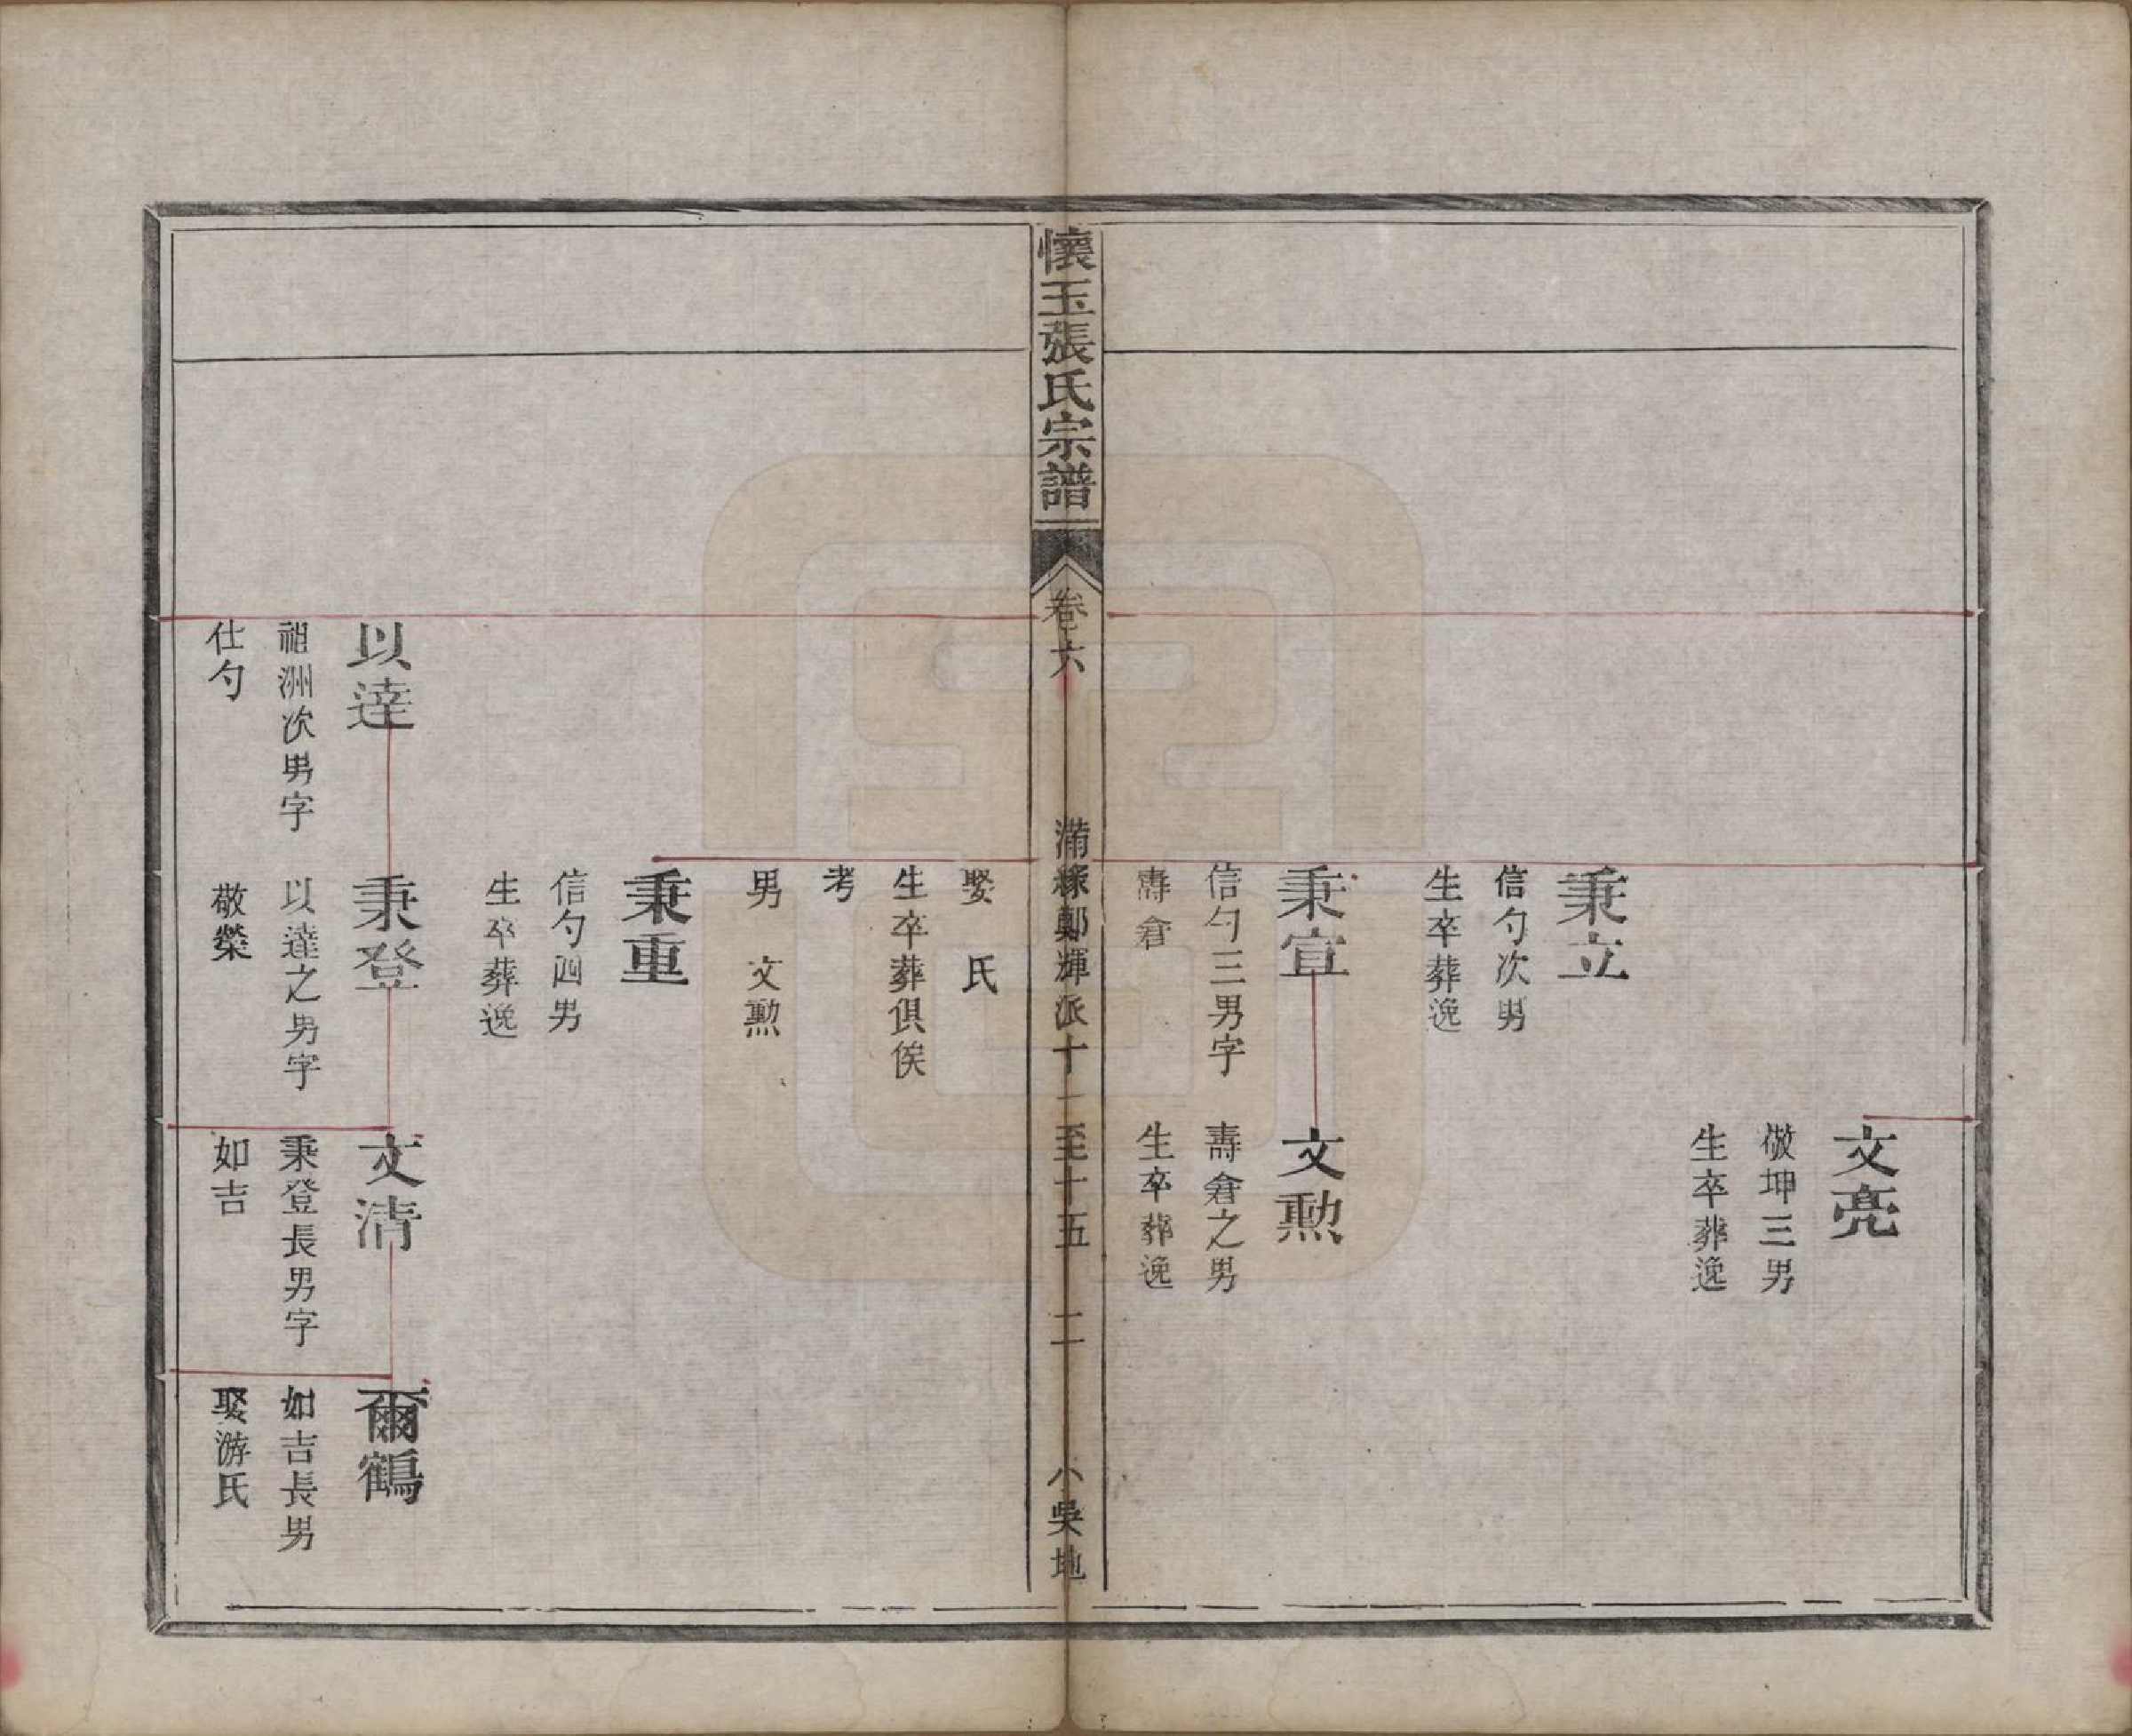 文亮
敬坤三男
生卒葬逸
秉立
信勺次男
生卒葬逸
秉宣
信勺三男字
壽眘
娶　氏
生卒葬俱俟
考
男　文勲
文勲
壽眘之男
生卒葬逸
懷玉張氏宗譜
卷六
鄭輝派十一至十五
二
八吳地
秉重
信勺四男
生卒葬逸
以達
祖洲次男字
仕勺
秉登
以達之男字
敬榮
文清
秉登長男字
如吉
爾鶴
如吉長男
娶游氏